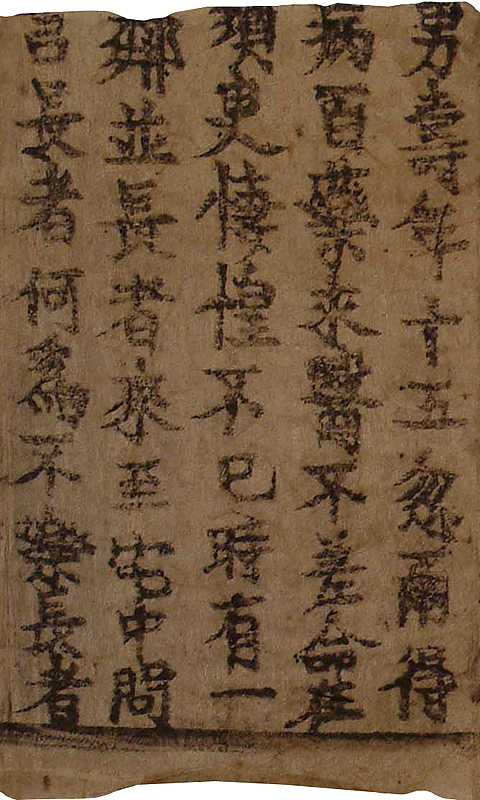 男壽年十五忽爾得
病百藥求醫不差命在
須臾悽惶不已時有一
鄰並長者來至家中問
言長者何為不樂長者